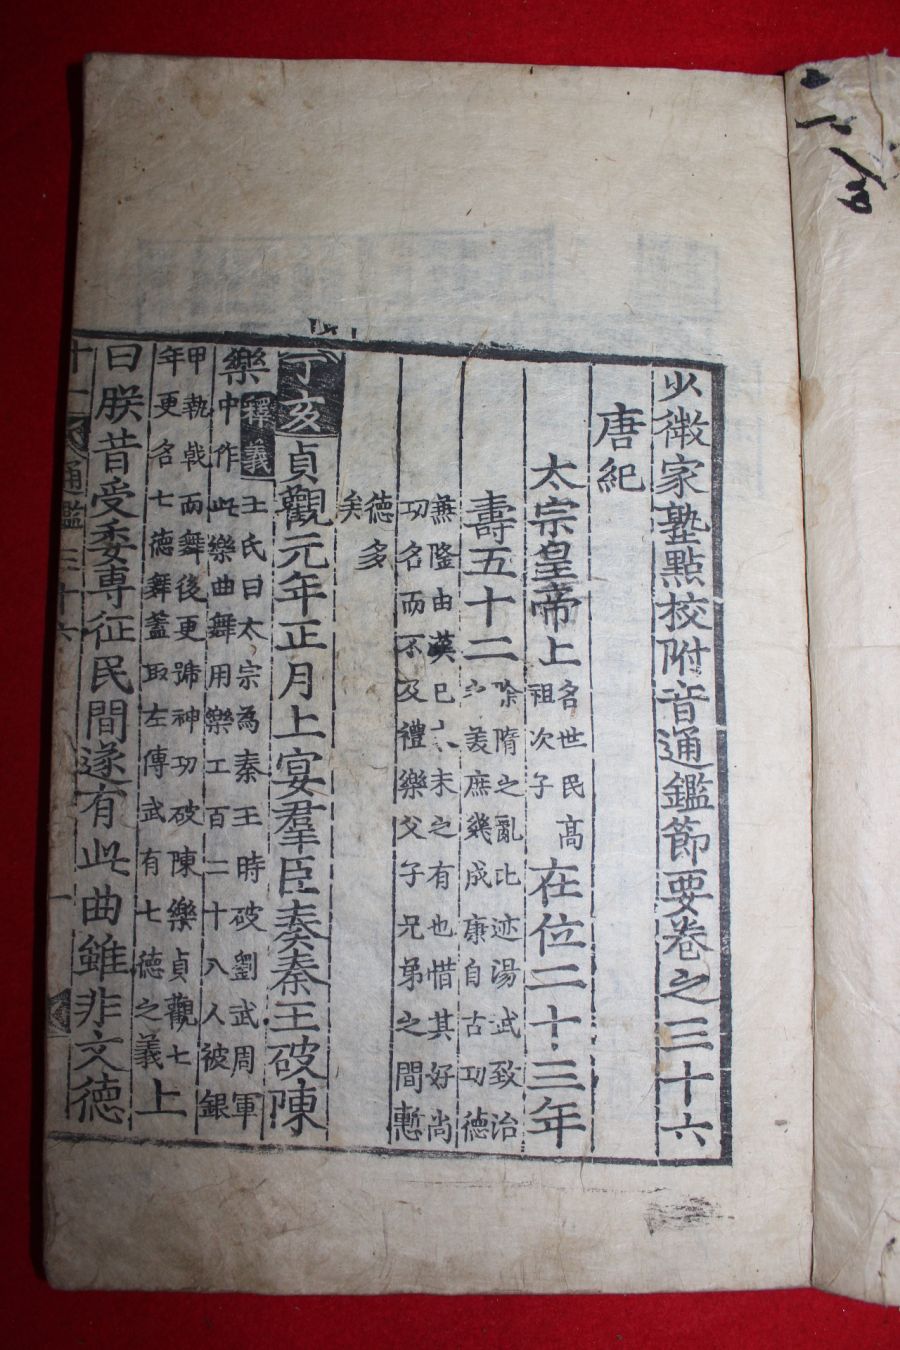 少微家塾點校附音通鑑節要卷之三十六
唐紀
太宗皇帝上名世民高
祖次子在位二十三年
壽五十二除隋之亂比迹湯武致治
之美庶幾成康自古功德
兼隆由漢已來未之有也惜其好尚
功名而不及禮樂父子兄弟之間慙
德多
矣
丁亥貞觀元年正月上宴羣臣奏秦王破陳
樂釋義王氏曰太宗為秦王時破劉武周軍
中作此樂曲舞用樂工百二十八人被銀
甲執戟而舞後更號神功破陳樂貞觀七
年更名七德舞蓋取左傳武有七德之義上
曰朕昔受委專征民間遂有此曲雖非文德
通鑑三十六 一